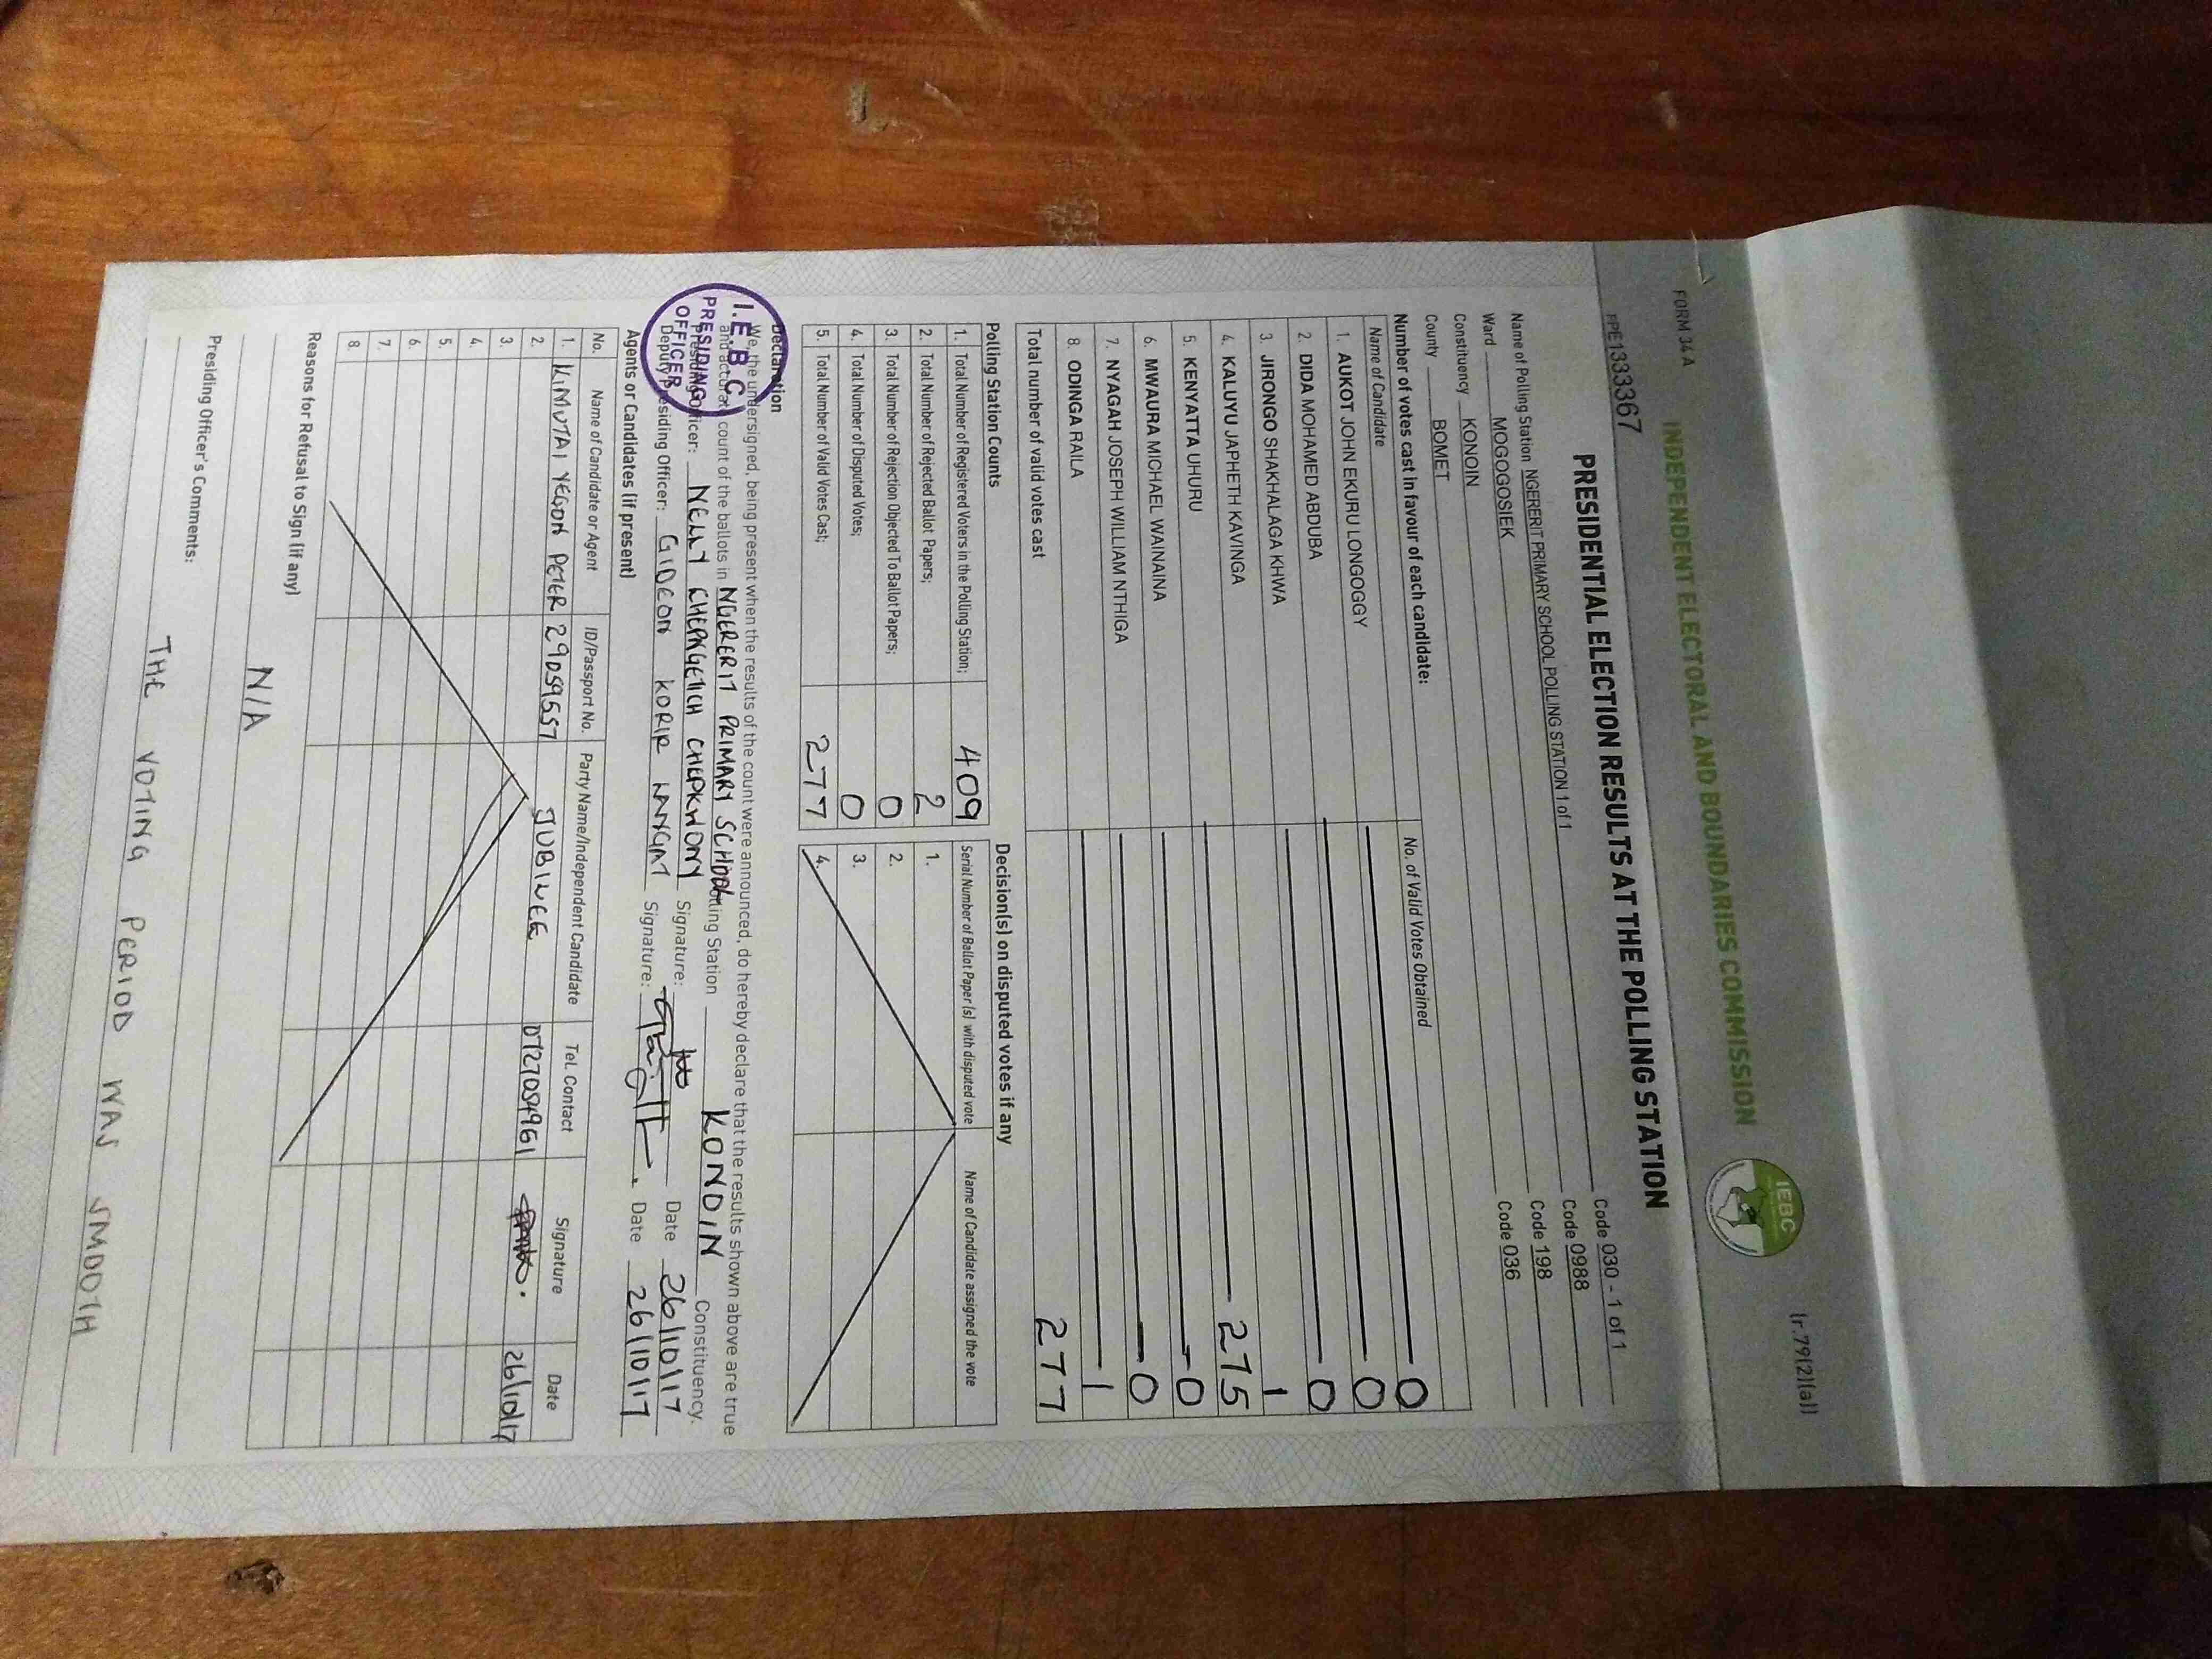 FORM 34A
(r.79(2)(a))
INDEPENDENT ELECTORAL AND BOUNDARIES COMMISSION
IEBC
PRESIDENTIAL ELECTION RESULTS AT THE POLLING STATION
PPE1333367
Name of Polling Station NGERERIT PRIMARY SCHOOL POLLING STATION 1 of 1 Code 030 - 1 of 1
Ward MOGOGOSIEK Code 0988
Constituency KONOIN Code 198
County BOMET Code 036
Number of votes cast in favour of each candidate:
Name of Candidate No. of Valid Votes Obtained
1. AUKOT JOHN EKURU LONGOGGY 0
2. DIDA MOHAMED ABDUBA 0
3. JIRONGO SHAKHALAGA KHWA 0
4. KALUYU JAPHETH KAVINGA 1
5. KENYATTA UHURU 275
6. MWAURA MICHAEL WAINAINA 0
7. NYAGAH JOSEPH WILLIAM NTHIGA 0
8. ODINGA RAILA 1
Total number of valid votes cast 277
Polling Station Counts Decision(s) on disputed votes if any
1. Total Number of Registered Voters in the Polling Station; 409 Serial Number of Ballot Paper(s) with disputed vote Name of Candidate assigned the vote
2. Total Number of Rejected Ballot Papers; 2 1.
3. Total Number of Rejection Objected To Ballot Papers; 0 2.
4. Total Number of Disputed Votes; 0 3.
5. Total Number of Valid Votes Cast; 277 4.
Declaration
We, the undersigned, being present when the results of the count were announced, do hereby declare that the results shown above are true
and accurate count of the ballots in NGERERIT PRIMARY SCHOOL Polling Station KONOIN Constituency.
Presiding Officer: NELLY CHEPNGETICH CHEPKWONY Signature: Date 26/10/17
Deputy Presiding Officer: GIDEON KORIR LANGAT Signature: Date 26/10/17
I.E.B.C
PRESIDING
OFFICER
Agents or Candidates (if present)
No. Name of Candidate or Agent ID/Passport No. Party Name/Independent Candidate Tel. Contact Signature Date
1. KIMUTAI YEGON PETER 29059557 JUBILEE 0727084961 26/10/17
2.
3.
4.
5.
6.
7.
8.
Reasons for Refusal to Sign (if any)
N/A
Presiding Officer's Comments:
THE VOTING PERIOD WAS SMOOTH